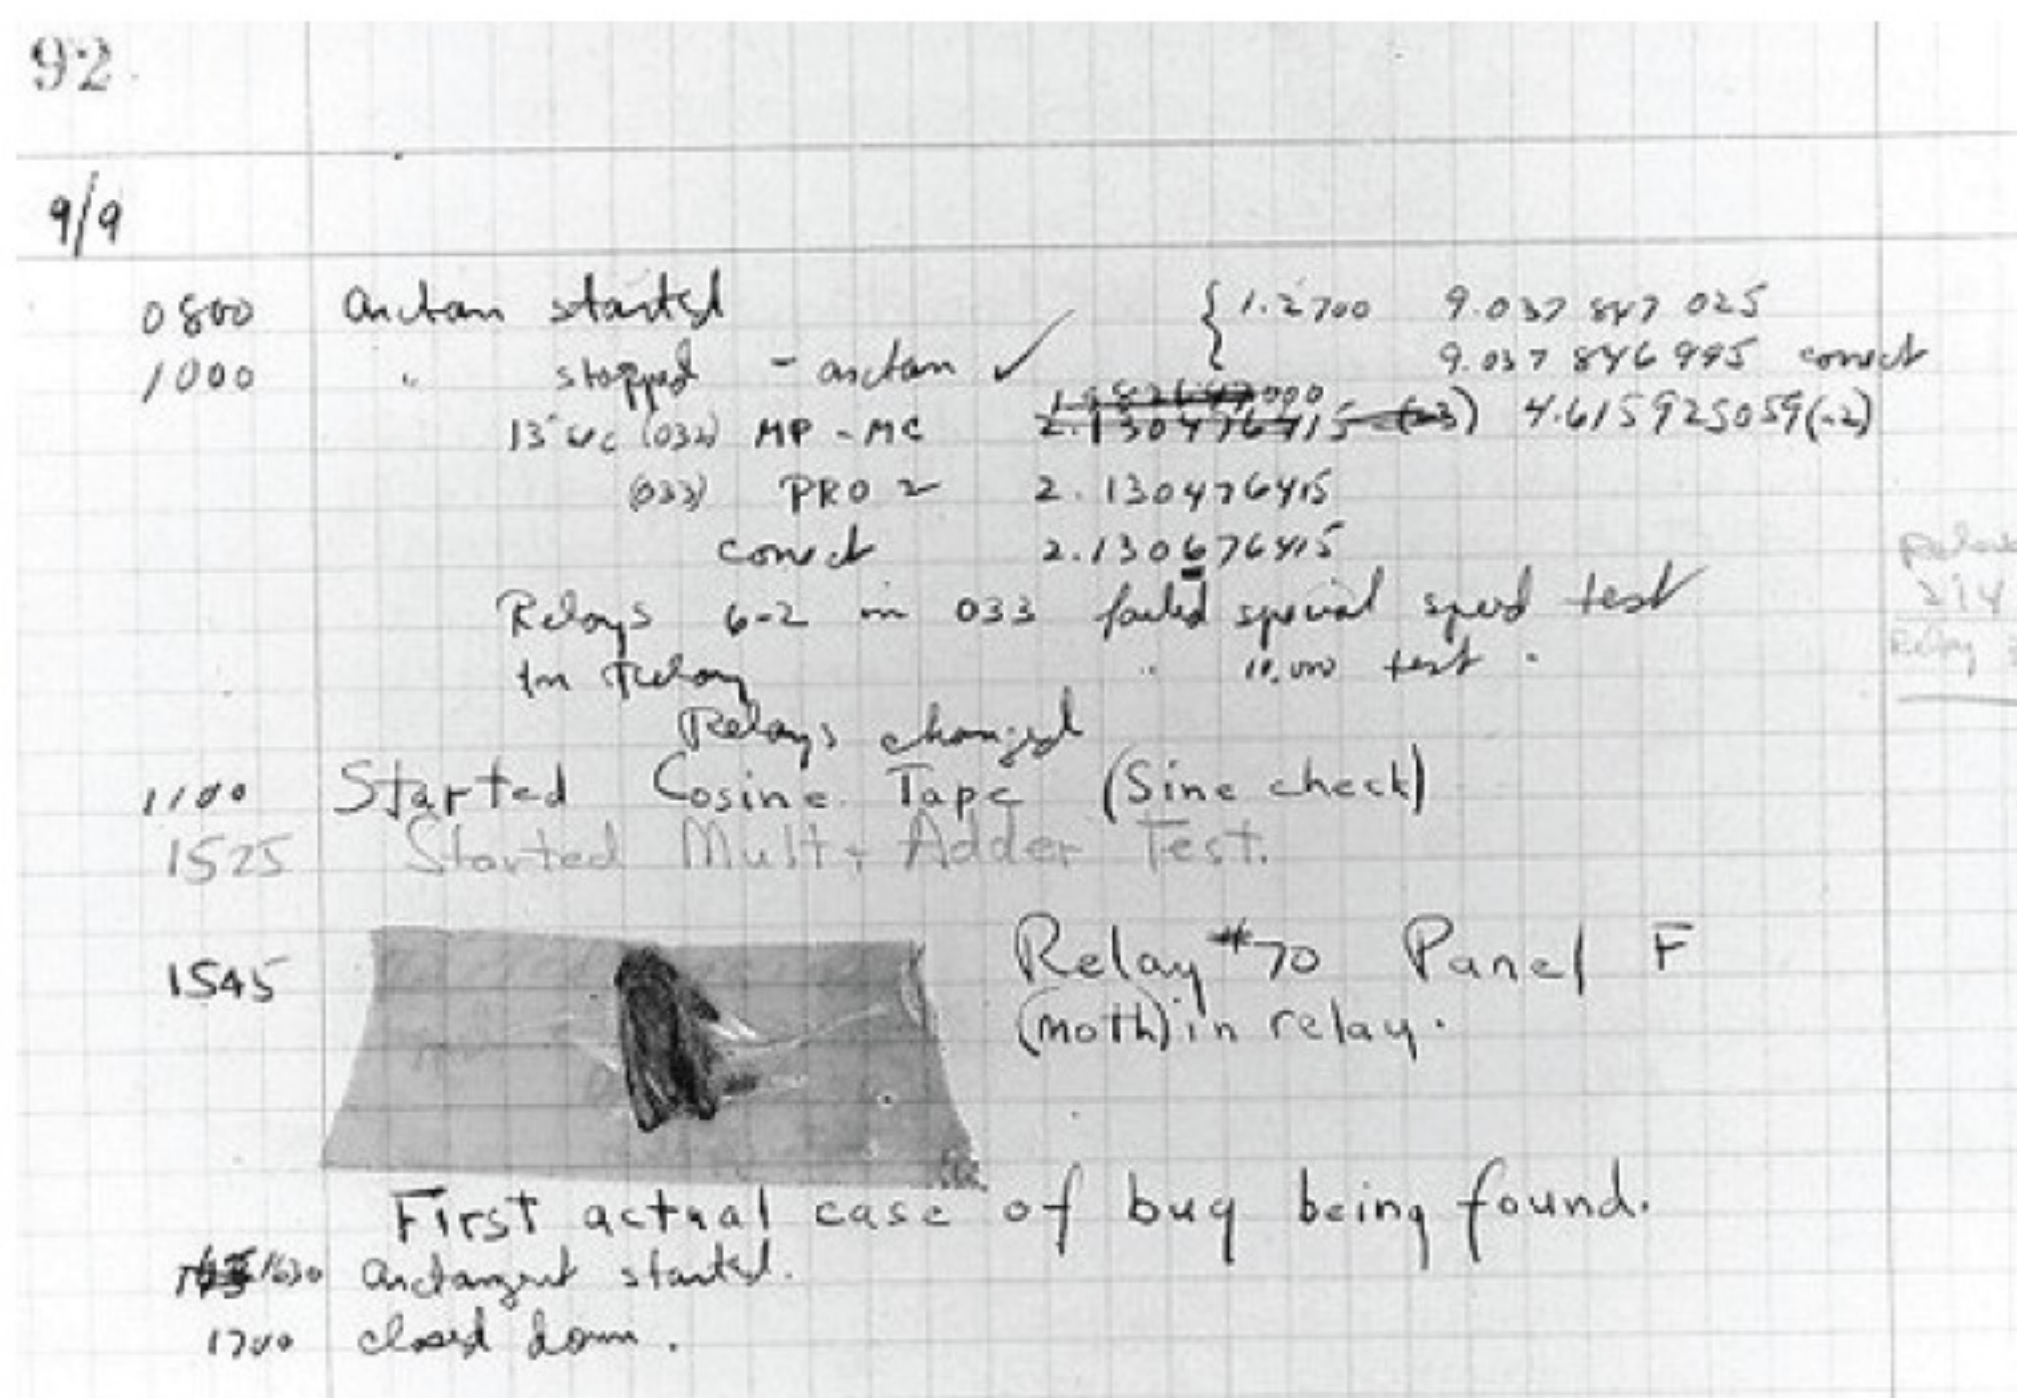 92
9/9
0800 arctan started { 1.2700 9.037 847 025
1000 " stopped - arctan ✓ 9.037 846 995 correct
000
13" uc (032) MP - MC 2.130476415 (-3) 4.615925059(-2)
(033) PRO 2 2.130476415
correct 2.130676415
Relays 6-2 in 033 failed special speed test
in Relay " 10,000 test .
Relays changed
1100 Started Cosine Tape (Sine check)
1525 Started Mult + Adder Test.
1545 Relay #70 Panel F
(moth) in relay.
First actual case of bug being found.
1630 arctangent started.
1700 closed down.
Relay
Relay